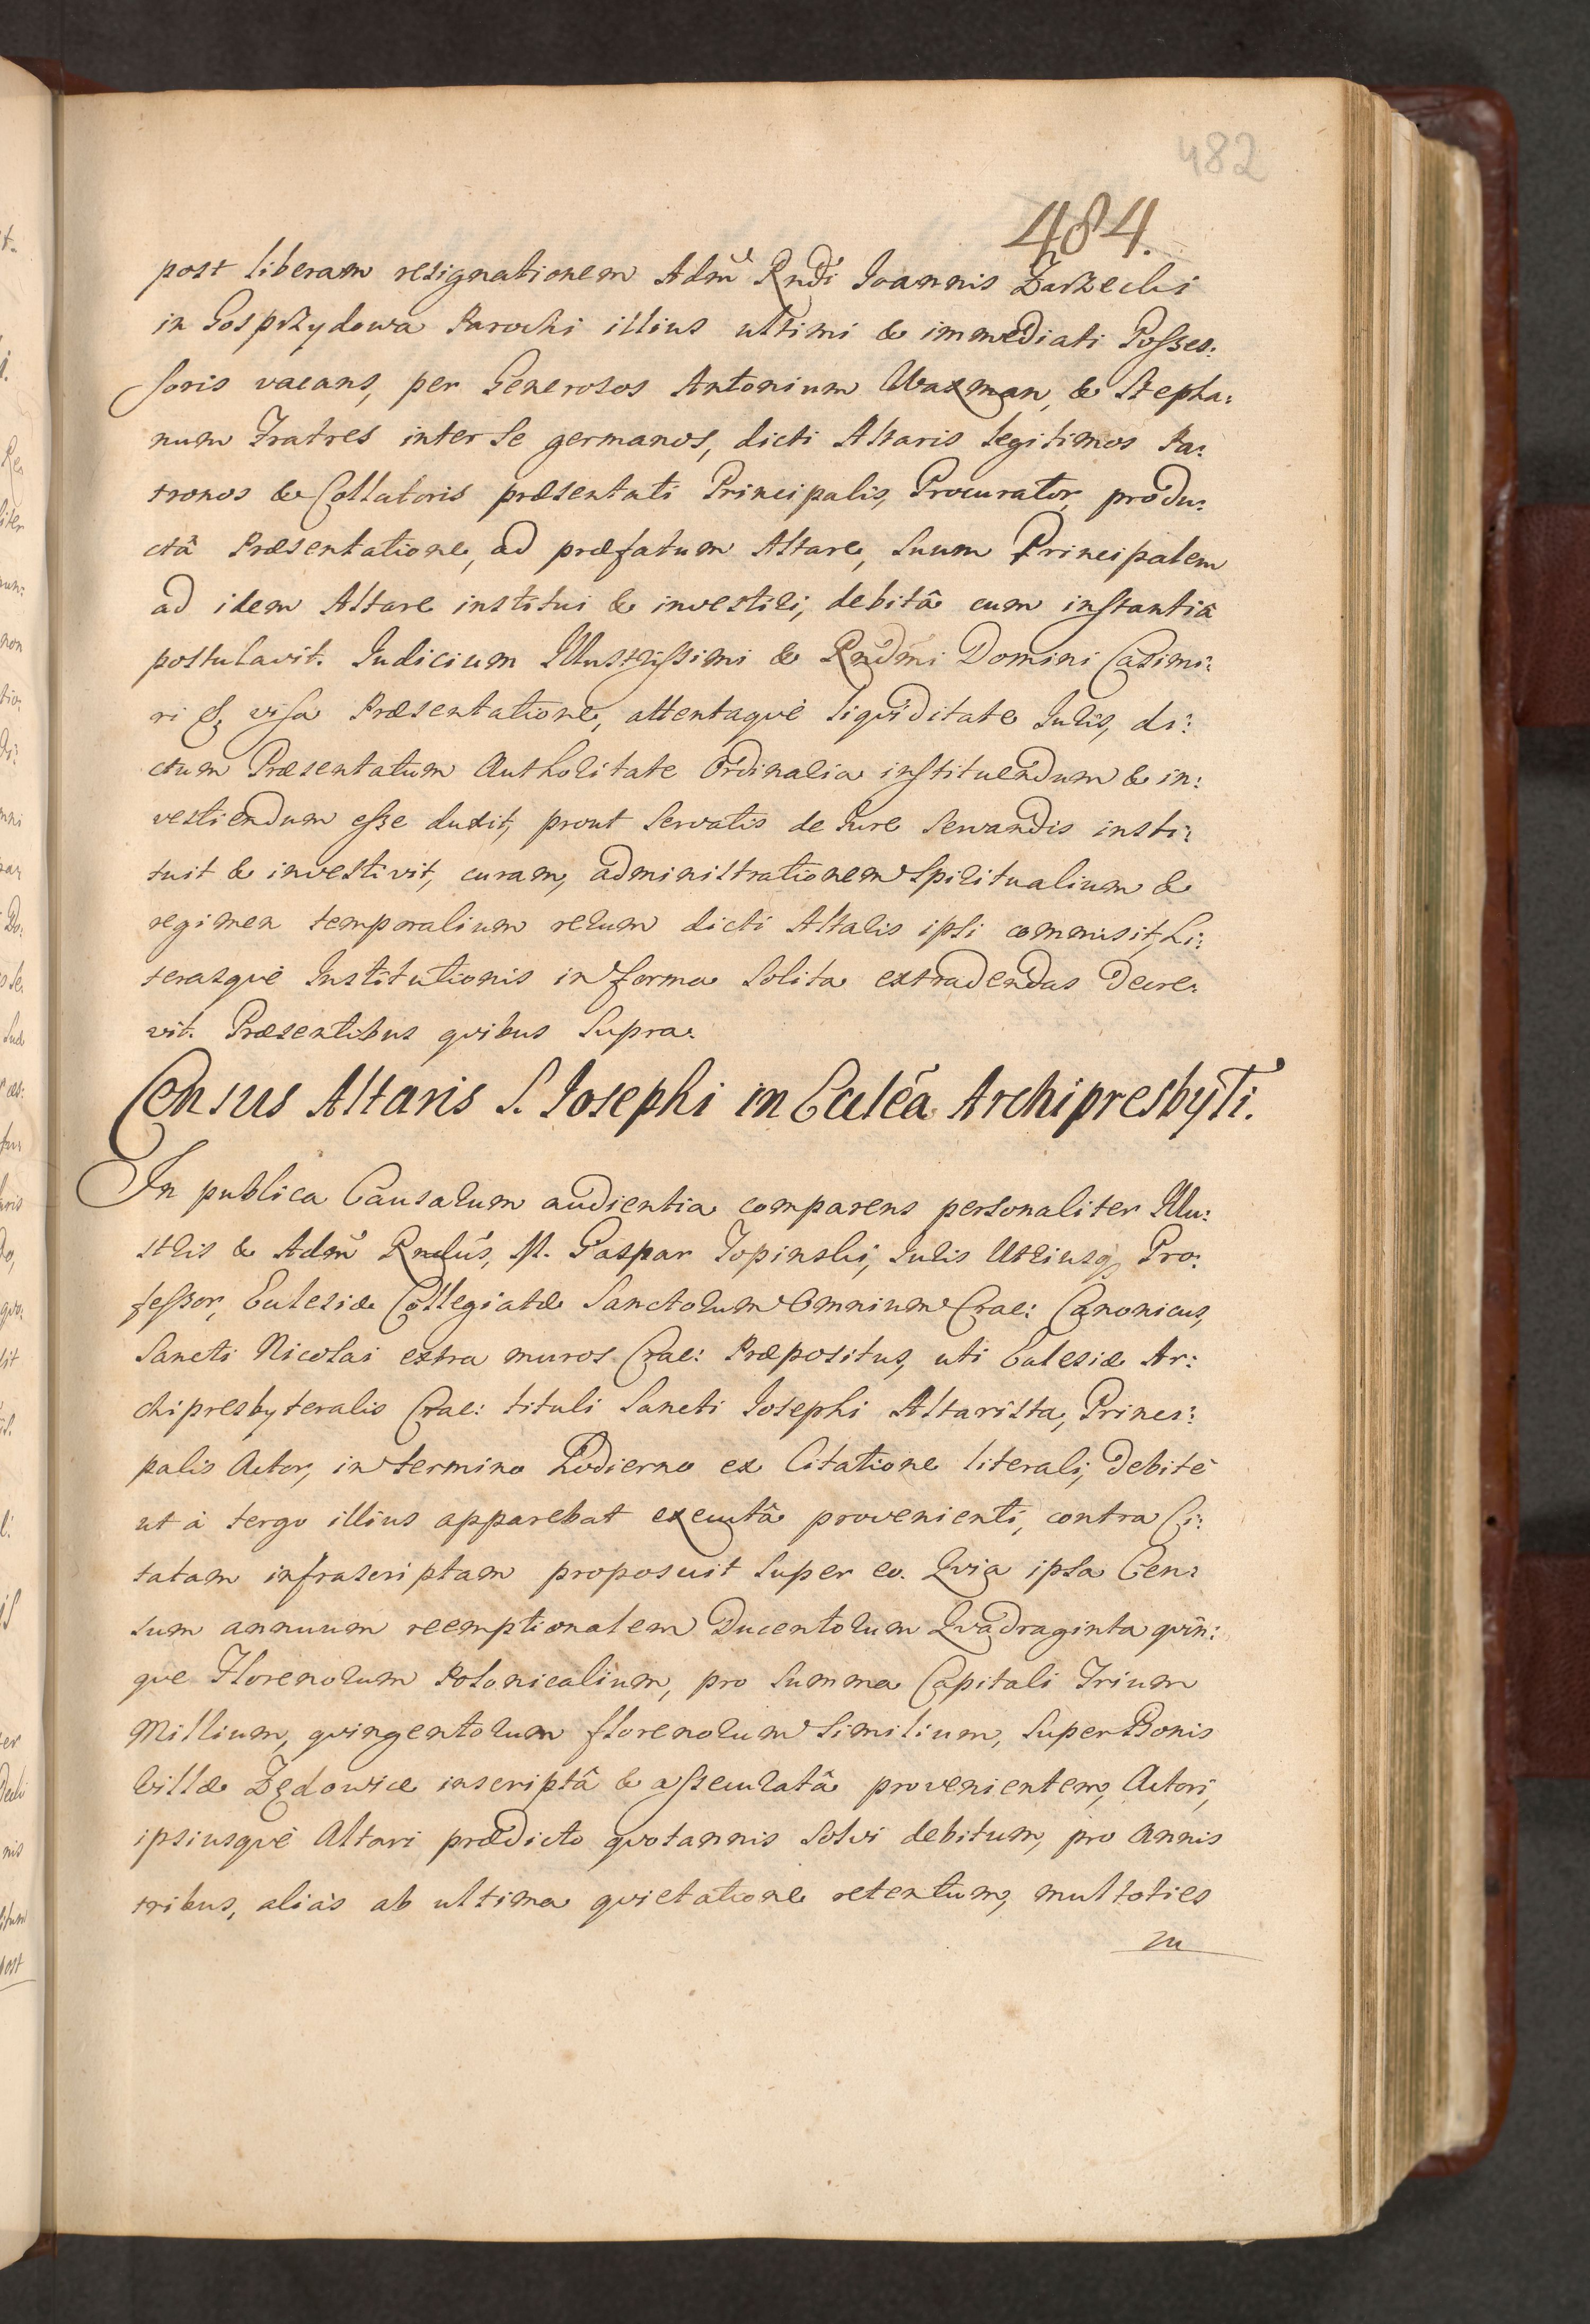 482
484.
post liberam resignationem Adm̃ Rndi Joannis Zarzecki
in Gosprzydowa Parochi illius ultimi & immediati Posses:
soris vacans, per Generosos Antonium Waxman, & Stepha:
num Fratres inter se germanos, dicti Altaris legitimos Pa:
tronos & Collatoris præsentati Principalis, Procurator, produ:
ctâ Præsentatione, ad præfatum Altare, suum Principalem
ad idem Altare institui & investiri, debitâ cum instantiâ
postulavit. Judicium Illustrissimi & Rndmi Domini Casimi:
ri &c visa Præsentatione, attentaquè liquiditate Juris, di:
ctum Præsentatum Authoritate Ordinaria instituendum & in:
vestiendum esse duxit, prout servatis de Jure servandis insti:
tuit & investivit, curam, administrationem Spiritualium &
regimen temporalium rerum dicti Altaris ipsi commisit, Li:
terasquè Institutionis in forma solita extradendas decre:
vit. Præsentibus quibus supra.
Census Altaris S. Josephi in Eccléa Archipresbyti.
In publica Causarum audientia comparens personaliter Illu:
stris & Adm̃ Rndus, M. Gaspar Topinski, Juris Utriusq; Pro:
fessor, Ecclesiæ Collegiatæ Sanctorum Omnium Crac: Canonicus,
Sancti Nicolai extra muros Crac: Præpositus, uti Ecclesiæ Ar:
chipresbyteralis Crac: tituli Sancti Josephi Altarista, Princi:
palis Actor, in termino hodierno ex Citatione literali, debitè
ut à tergo illius apparebat executâ provenienti, contra Ci:
tatam infrascriptam proposuit super eo. Quia ipsa Cen:
sum annuum reemptionalem Ducentorum Quadraginta quin:
que Florenorum Polonicalium, pro summa Capitali Trium
Millium, quingentorum florenorum similium, super Bonis
Villæ Zędowice inscriptâ & assecuratâ provenientem, Actori,
ipsiusquè Altari prædicto quotannis solvi debitum, pro annis
tribus, aliàs ab ultima quietatione retentum, multoties
in